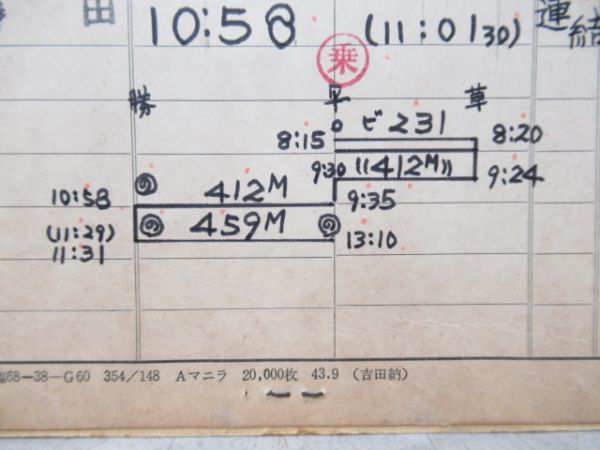 田 10:58 (11:01 30) 連結
乗
勝 平 草
ビ231
8:15 8:20
9:30 ((412M)) 9:24
10:58 の 412M 9:35
(11:29) の 459M の 13:10
11:31
68-38-G60 354/148 Aマニラ 20,000枚 43.9 (吉田納)